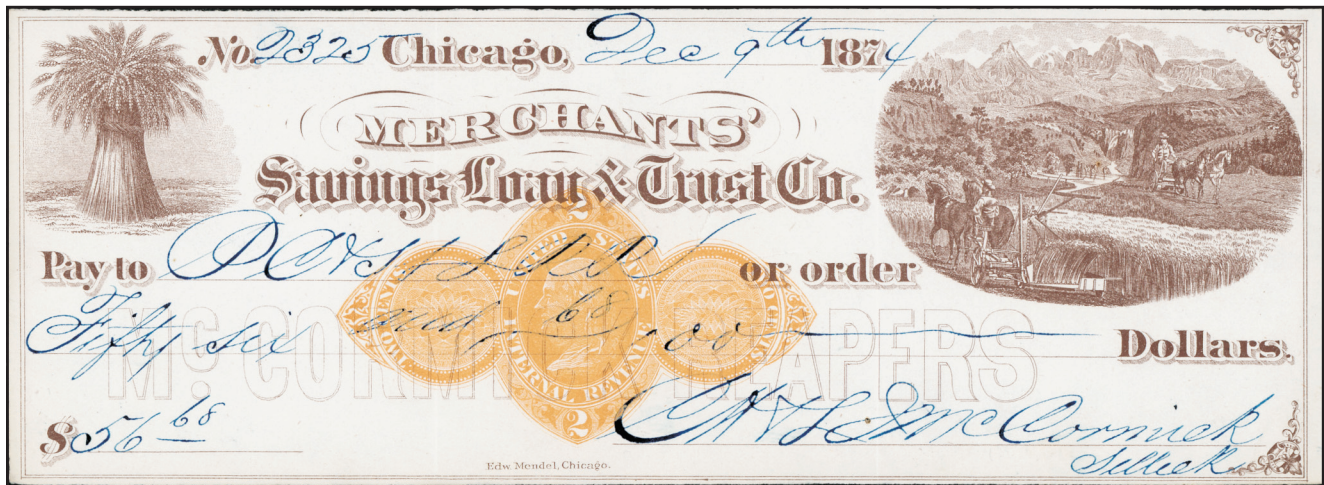 No. 2325 Chicago, Dec 9th 1874
MERCHANTS'
Savings Loan & Trust Co.
Pay to or order
Fifty six and 68/00 Dollars.
McCORMICK REAPERS
UNITED STATES
INTERNAL REVENUE
TWO CENTS
TWO CENTS
2
2
$56 68
C H & L J McCormick
Selleck
Edw. Mendel, Chicago.